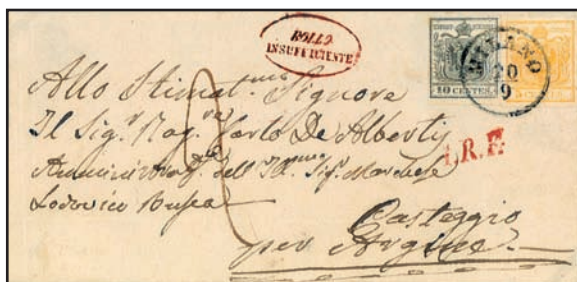 BOLLO
INSUFFICIENTE
10 CENTES.
MILANO
20
9
Allo Stimat.mo Signore
Il Sig.r Rag.re Carlo De Alberti
dell' Ill.mo Sig. Marchese
Lodovico
I.R.F.
Casteggio
per Argine